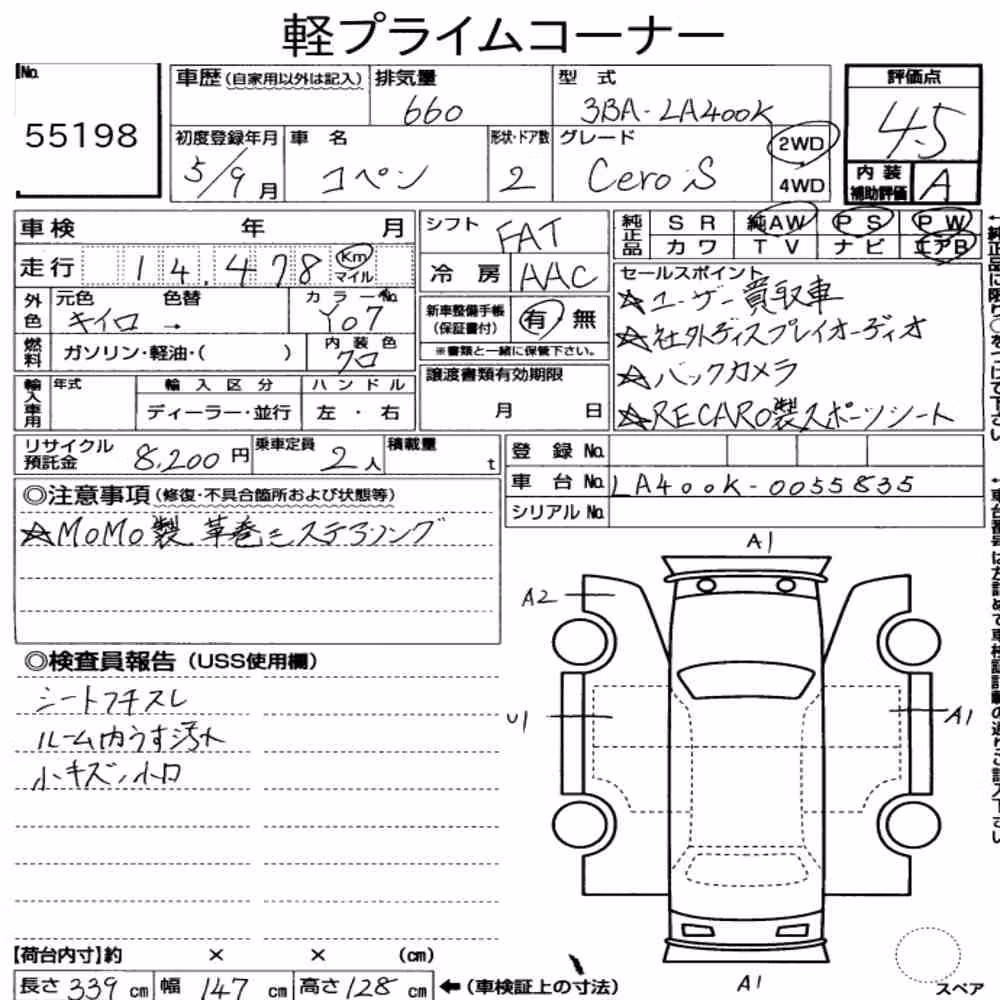 軽プライムコーナー
No.
55198
車歴(自家用以外は記入) 排気量 型 式 評価点
660 3BA-LA400K 4.5
初度登録年月 車 名 形状・ドア数 グレード
5/9月 コペン 2 Cero S 2WD 4WD
内装補助評価 A
車検 年 月
走行 14.478 Km マイル
外色 元色 色替 カラーNo.
キイロ → Y07
燃料 ガソリン・軽油・( ) 内装色 クロ
輸入車用 年式 輸入区分 ハンドル
ディーラー・並行 左・右
シフト FAT
冷房 AAC
新車整備手帳(保証書付) 有 無
※書類と一緒に保管下さい。
譲渡書類有効期限
月 日
純正品 SR 純AW PS PW
カワ TV ナビ エアB
セールスポイント
☆ユーザー買取車
☆社外ディスプレイオーディオ
☆バックカメラ
☆RECARO製スポーツシート
リサイクル預託金 8,200円 乗車定員 2人 積載量 t
登 録 No.
車 台 No. LA400K-0055835
シリアル No.
◎注意事項(修復・不具合箇所および状態等)
☆MOMO製 革巻きステアリング
◎検査員報告(USS使用欄)
シートフチスレ
ルーム内うす汚れ
小キズ、小凹
A1
A2
U1
A1
A1
スペア
【荷台内寸】約 × × (cm)
長さ 339 cm 幅 147 cm 高さ 128 cm ←(車検証上の寸法)